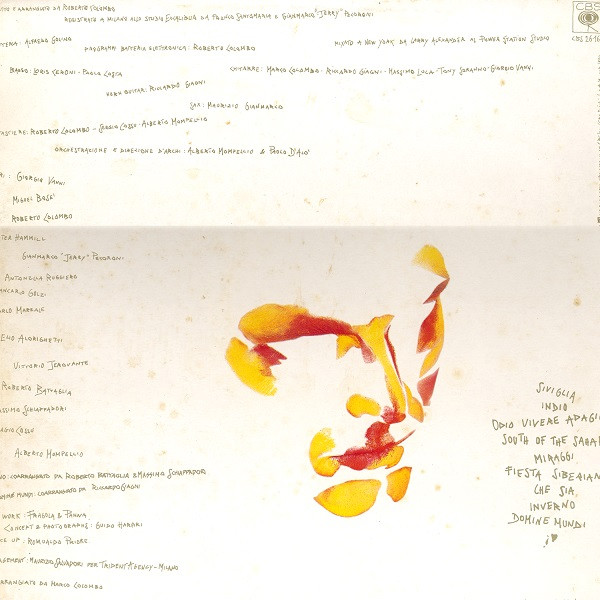 TTO E ARRANGIATO DA ROBERTO COLOMBO
REGISTRATO A MILANO ALLO STUDIO EXCALIBUR DA FRANCO SANTAMARIA E GIANMARCO "JERRY" PECORONI
CBS
CBS 26 16
TERIA: ALFREDO GOLINO
PROGRAMMI BATTERIA ELETTRONICA: ROBERTO COLOMBO
MIXATO A NEW YORK DA LARRY ALEXANDER AL POWER STATION STUDIO
BASSO: LORIS CERONI - PAOLO COSTA
CHITARRE: MARCO COLOMBO - RICCARDO GIAGNI - MASSIMO LUCA - TONY SORANNO - GIORGIO VANNI
WORK GUITAR: RICCARDO GIAGNI
SAX: MAURIZIO GIAMMARCO
TASTIERE: ROBERTO COLOMBO - SERGIO COSSU - ALBERTO MOMPELLIO
ORCHESTRAZIONE E DIREZIONE D'ARCHI: ALBERTO MOMPELLIO & PAOLO
I: GIORGIO VANNI
MIGUEL BOSE'
ROBERTO COLOMBO
TER HAMMILL
GIANMARCO "JERRY" PECORONI
ANTONELLA RUGGIERO
ANCARLO GOLZI
RLO MARRALE
ENO ALDRIGHETTI
VITTORIO
ROBERTO BATTAGLIA
ASSIMO SCHIAPPADORI
GIO COSSU
ALBERTO MOMPELLIO
NO: COARRANGIATO DA ROBERTO BATTAGLIA & MASSIMO SCHIAPPADORI
MINE MUNDI: COARRANGIATO DA RICCARDO GIAGNI
WORK: FRAGOLA & PANNA
CONCEPT & PHOTOGRAPHS: GUIDO HARARI
KE UP: ROMUALDO PRIORE
AGEMENT: MAURIZIO SALVADORI PER TRIDENT AGENCY - MILANO
ARRANGIATO DA MARCO COLOMBO
SIVIGLIA
INDIO
ODIO VIVERE ADAGIO
SOUTH OF THE SAHAR
MIRAGGI
FIESTA SIBERIAN
CHE SIA
INVERNO
DOMINE MUNDI